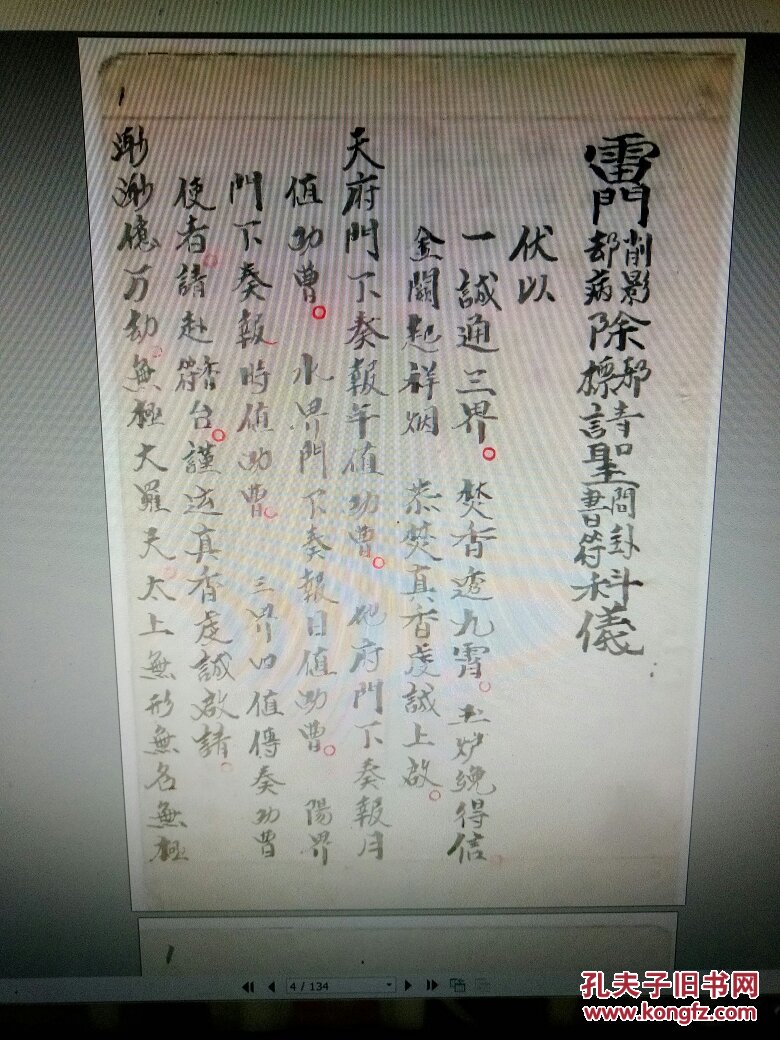 雷門削影却病除邪標請聖問卦書符科儀
伏以
一誠通三界。焚香透九霄。玉炉纔得信。
金闕起祥烟 恭焚真香虔誠上啟。
天府門下奏報年值功曹。地府門下奏報月
值功曹。水界門下奏報日值功曹。陽界
門下奏報時值功曹。三界四值傳奏功曹
使者。請赴香筵台。謹运真香虔誠啟請。
渺渺億万劫。無極大羅天。太上無形無名無極
1
1
4 / 134
孔夫子旧书网
www.kongfz.com